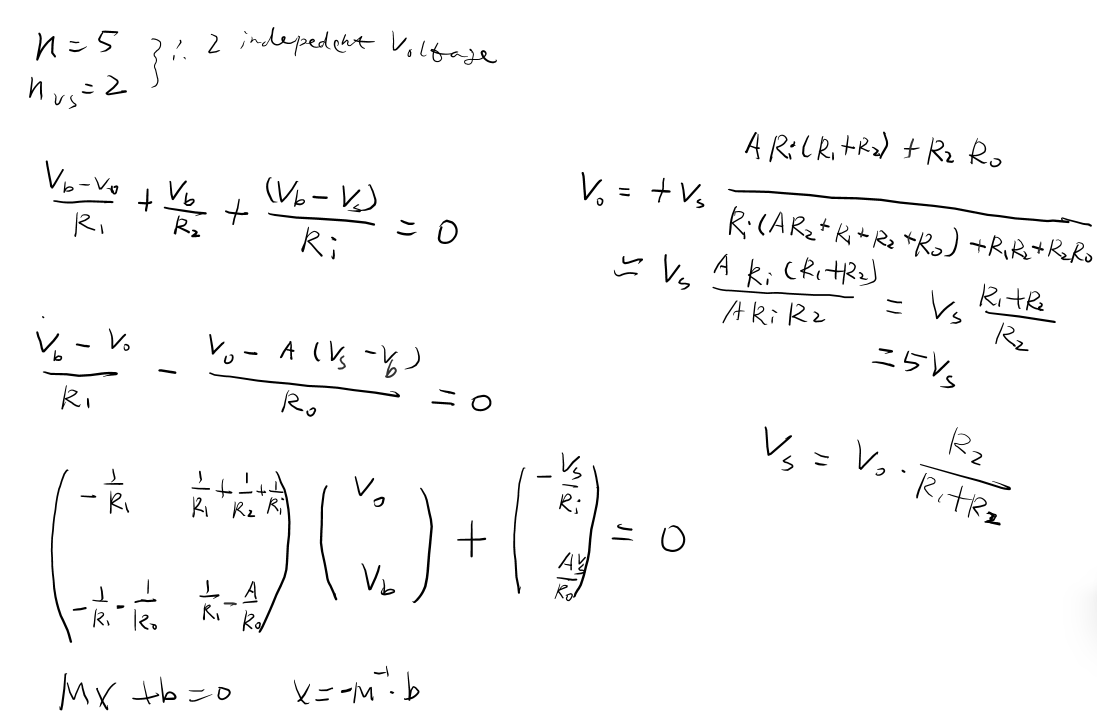 n = 5
n_vs = 2 } ∴ 2 indepedent Voltage
(V_b - V_o)/R_1 + V_b/R_2 + (V_b - V_s)/R_i = 0
(V_b - V_o)/R_1 - (V_o - A (V_s - V_b))/R_o = 0
( -1/R_1   1/R_1 + 1/R_2 + 1/R_i ; -1/R_1 - 1/R_o   1/R_1 - A/R_o ) ( V_o ; V_b ) + ( -V_s/R_i ; AV_s/R_o ) = 0
Mx + b = 0   x = -M^-1 · b
V_o = + V_s (A R_i (R_1 + R_2) + R_2 R_o)/(R_i (A R_2 + R_1 + R_2 + R_o) + R_1 R_2 + R_2 R_o)
≃ V_s (A R_i (R_1 + R_2))/(A R_i R_2) = V_s (R_1 + R_2)/R_2
= 5 V_s
V_s = V_o · R_2/(R_1 + R_2)